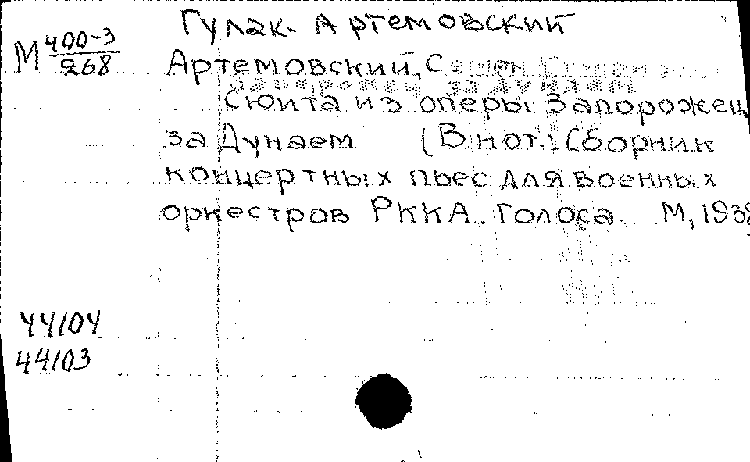 Гулак-Артемовский
М 400-3/268
Артемовский, С
Сюита из оперы Запорожец
за Дунаем (В нот. Сборник
концертных пьес для военных
оркестров РККА. Голоса. М, 1938
44104
44103